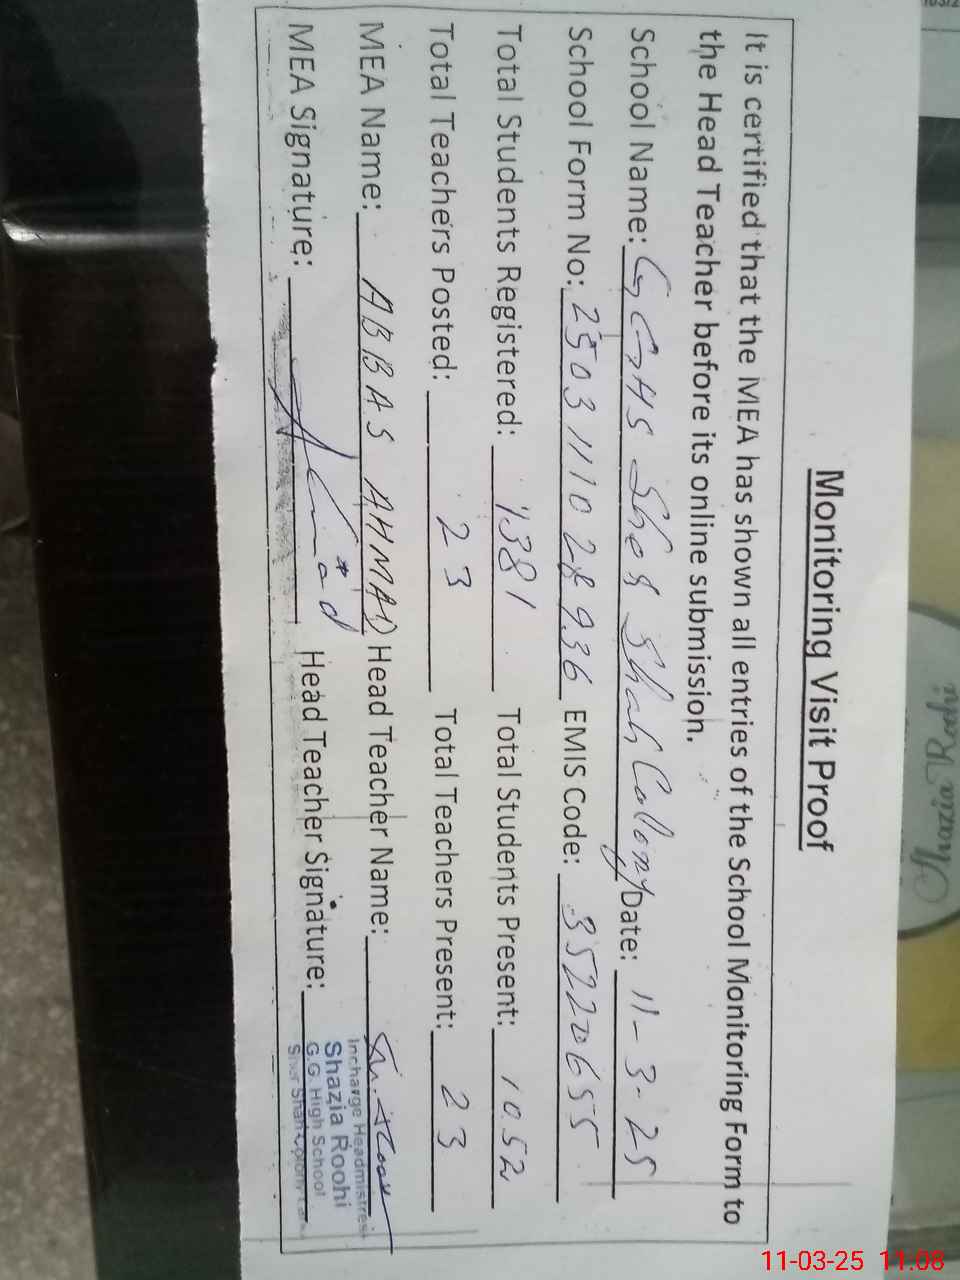 Monitoring Visit Proof
It is certified that the MEA has shown all entries of the School Monitoring Form to
the Head Teacher before its online submission.
School Name: GGHS Sher Shah Colony Date: 11-3-25
School Form No: 2503111028936 EMIS Code: 35220655
Total Students Registered: 1381 Total Students Present: 1052
Total Teachers Posted: 23 Total Teachers Present: 23
MEA Name: ABBAS AHMAD Head Teacher Name:
MEA Signature: Ahmad Head Teacher Signature:
Incharge Headmistress
Shazia Roohi
G.G. High School
Sher Shah Colony
Shazia Roohi
11-03-25 11:08